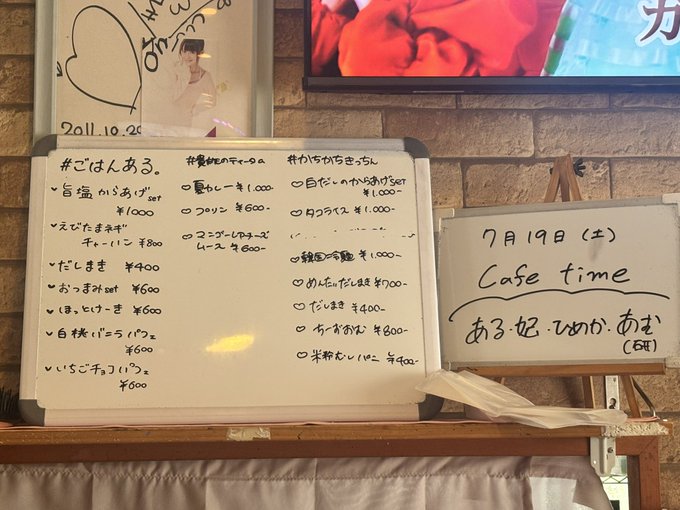 2011.10.29
#ごはんある。
旨塩からあげset
¥1000
えびたまネギ
チャーハン ¥800
だしまき ¥400
おつまみset ¥600
ほっとけーき ¥600
白桃バニラパフェ
¥600
いちごチョコパフェ
¥600
夏カレー ¥1.000-
プリン ¥600-
マンゴーレアチーズ
ムース ¥600-
#かちかちきっちん
白だしのからあげset
¥1.000-
タコライス ¥1.000-
韓国冷麺 ¥1.000-
めんたいだしまき ¥700-
だしまき ¥400-
ちーおおむ ¥800-
米粉むしパン ¥400-
7月19日(土)
Cafe time
ある・妃・ひめか・あむ
(石井)
が